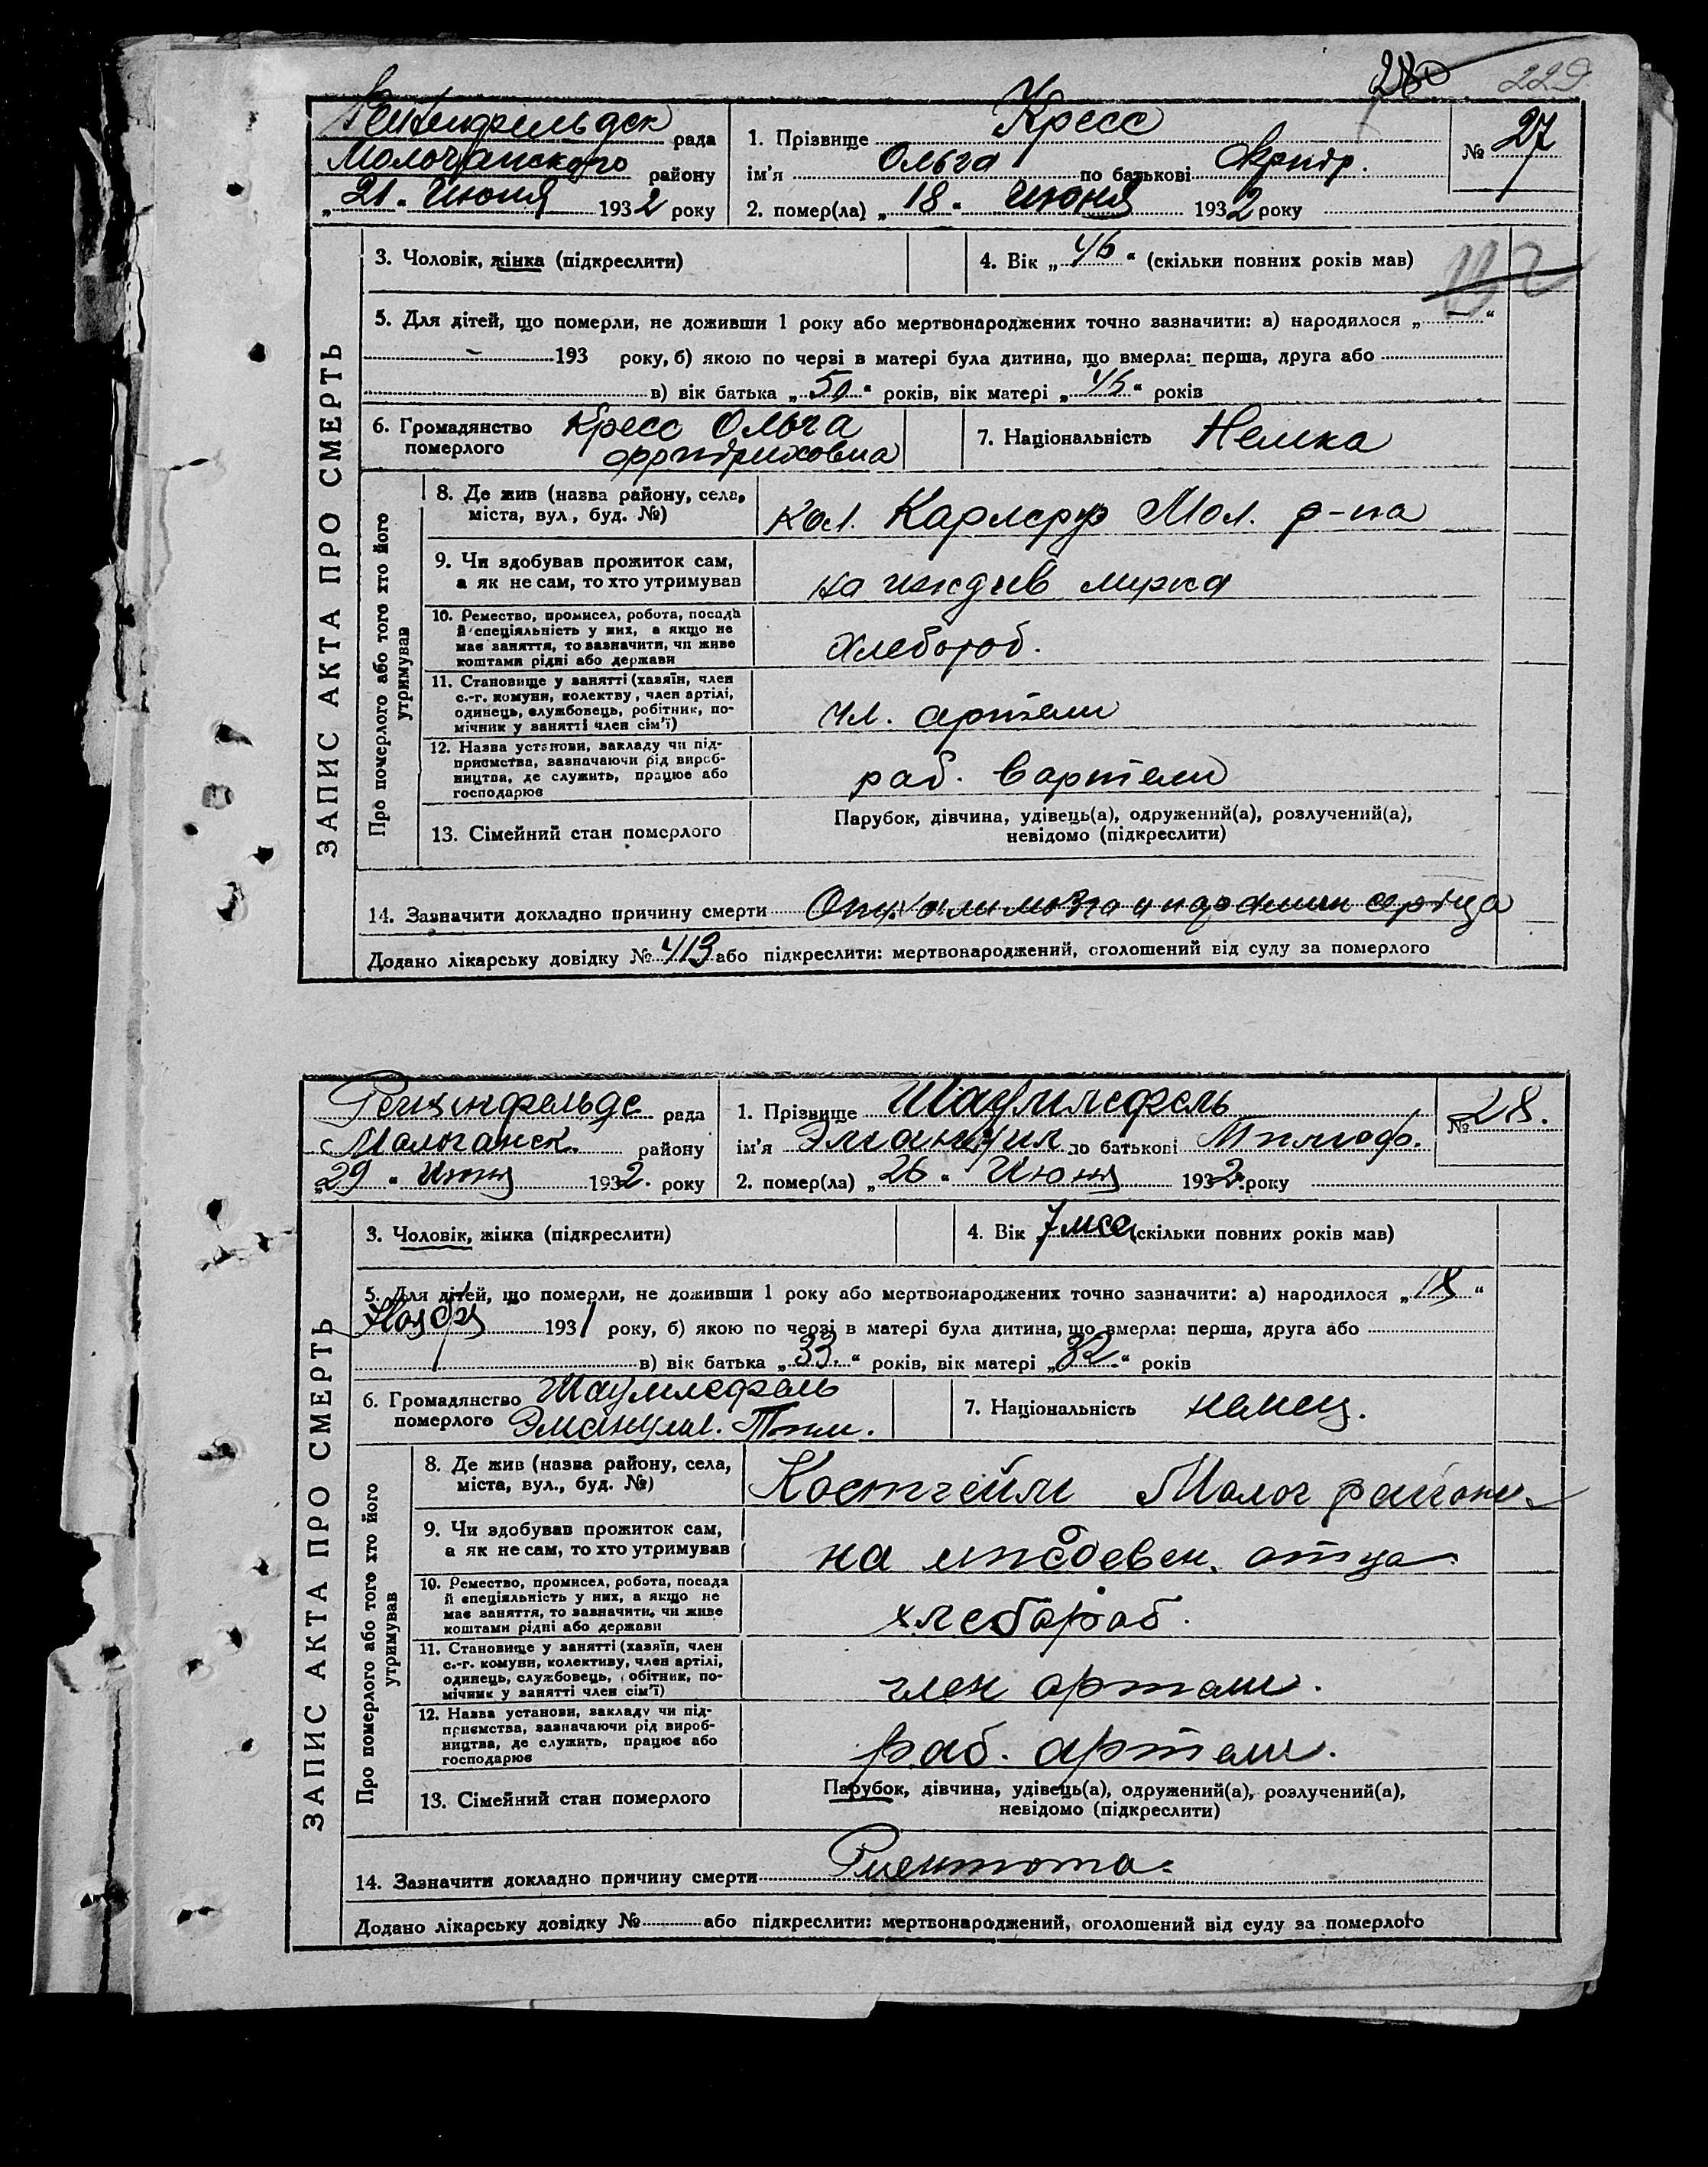 280 229
рада
Молочанского району
„ 21 “ Июня 1932 року
1. Прізвище Кресс
ім’я Ольга по батькові Фридр.
2. помер(ла) „ 18 “ Июня 1932 року
№ 27
ЗАПИС АКТА ПРО СМЕРТЬ
3. Чоловік, жінка (підкреслити)
4. Вік „ 46 “ (скільки повних років мав)
5. Для дітей, що померли, не доживши 1 року або мертвонароджених точно зазначити: а) народилося „ “
193 року, б) якою по черзі в матері була дитина, що вмерла: перша, друга або
в) вік батька „ 50 “ років, вік матері „ 46 “ років
6. Громадянство Кресс Ольга
померлого Фридриховна
7. Національність Немка
Про померлого або того хто його
утримував
8. Де жив (назва району, села,
міста, вул., буд. №)
Кол. Карлсру Мол. р-на
9. Чи здобував прожиток сам,
а як не сам, то хто утримував
на иждив мужа
10. Ремество, промисел, робота, посада
й спеціяльність у них, а якщо не
має заняття, то зазначити, чи живе
коштами рідні або держави
хлебороб.
11. Становище у занятті (хазяїн, член
с.-г. комуни, колективу, член артілі,
одинець, службовець, робітник, по-
мічник у занятті член сім’ї)
чл. артели
12. Назва установи, закладу чи під-
приємства, зазначаючи рід вироб-
ництва, де служить, працює або
господарює
раб. в артели
13. Сімейний стан померлого
Парубок, дівчина, удівець(а), одружений(а), розлучений(а),
невідомо (підкреслити)
14. Зазначити докладно причину смерти мозга и сердца
Додано лікарську довідку № 413 або підкреслити: мертвонароджений, оголошений від суду за померлого
рада
Молочанск. району
„ 29 “ Июня 1932. року
1. Прізвище
ім’я Эмануил по батькові
2. помер(ла) „ 26 “ Июня 1932. року
№ 28.
ЗАПИС АКТА ПРО СМЕРТЬ
3. Чоловік, жінка (підкреслити)
4. Вік 7 мес (скільки повних років мав)
5. Для дітей, що померли, не доживши 1 року або мертвонароджених точно зазначити: а) народилося „ 18 “
Ноября 1931 року, б) якою по черзі в матері була дитина, що вмерла: перша, друга або
в) вік батька „ 33. “ років, вік матері „ 32. “ років
6. Громадянство
померлого Эмануил.
7. Національність немец.
Про померлого або того хто його
утримував
8. Де жив (назва району, села,
міста, вул., буд. №)
Костгейм Молоч района
9. Чи здобував прожиток сам,
а як не сам, то хто утримував
на отца
10. Ремество, промисел, робота, посада
й спеціяльність у них, а якщо не
має заняття, то зазначити, чи живе
коштами рідні або держави
хлебороб.
11. Становище у занятті (хазяїн, член
с.-г. комуни, колективу, член артілі,
одинець, службовець, обітник, по-
мічник у занятті член сім’ї)
член артели.
12. Назва установи, закладу чи під-
приємства, зазначаючи рід вироб-
ництва, де служить, працює або
господарює
раб. артели.
13. Сімейний стан померлого
Парубок, дівчина, удівець(а), одружений(а), розлучений(а),
невідомо (підкреслити)
14. Зазначити докладно причину смерти
Додано лікарську довідку № або підкреслити: мертвонароджений, оголошений від суду за померлого